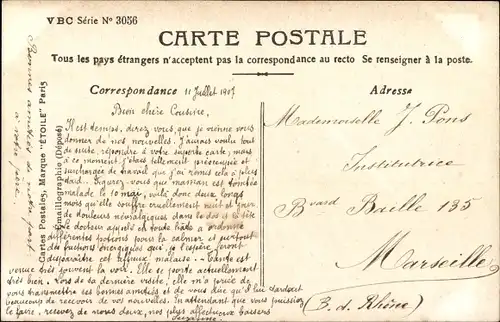 VBC Série N° 3056
CARTE POSTALE
Tous les pays étrangers n'acceptent pas la correspondance au recto Se renseigner à la poste.
Correspondance
11 Juillet 1907
Adresse
Bien chère Cousine,
Il est temps, direz vous, que je vienne vous
donner de nos nouvelles. J'aurais voulu tout
de suite répondre à votre superbe carte, mais
à ce moment j'étais tellement préoccupée et
surchargée de travail que j'ai remis cela à plus
tard. Vous voyez que maman est tombée
malade le 10 mai, voilà donc deux longs
mois qu'elle souffre cruellement nuit et jour
de douleurs névralgiques dans le dos et la tête
Le docteur appelé en toute hâte a ordonné
différentes potions pour la calmer et surtout
des frictions énergiques qui je l'espère feront
disparaître cet affreux malaise. Tante est
venue très souvent la voir. Elle se porte actuellement
très bien. Lors de sa dernière visite, elle m'a priée de
vous transmettre ses bonnes amitiés et de vous dire qu'il lui tardait
beaucoup de recevoir de vos nouvelles. En attendant que vous puissiez
le faire, recevez de nous deux, nos plus affectueux baisers
Mademoiselle J. Pons
Institutrice
Bvard Baille 135
Marseille
(B. d. Rhône)
Cartes Postales, Marque "ÉTOILE" Paris
Émaillographie (Déposé)